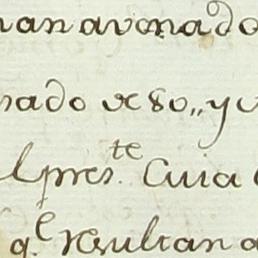 han avonado
nado de 80,, y c
el pres.te Cuia
q.e resultan a